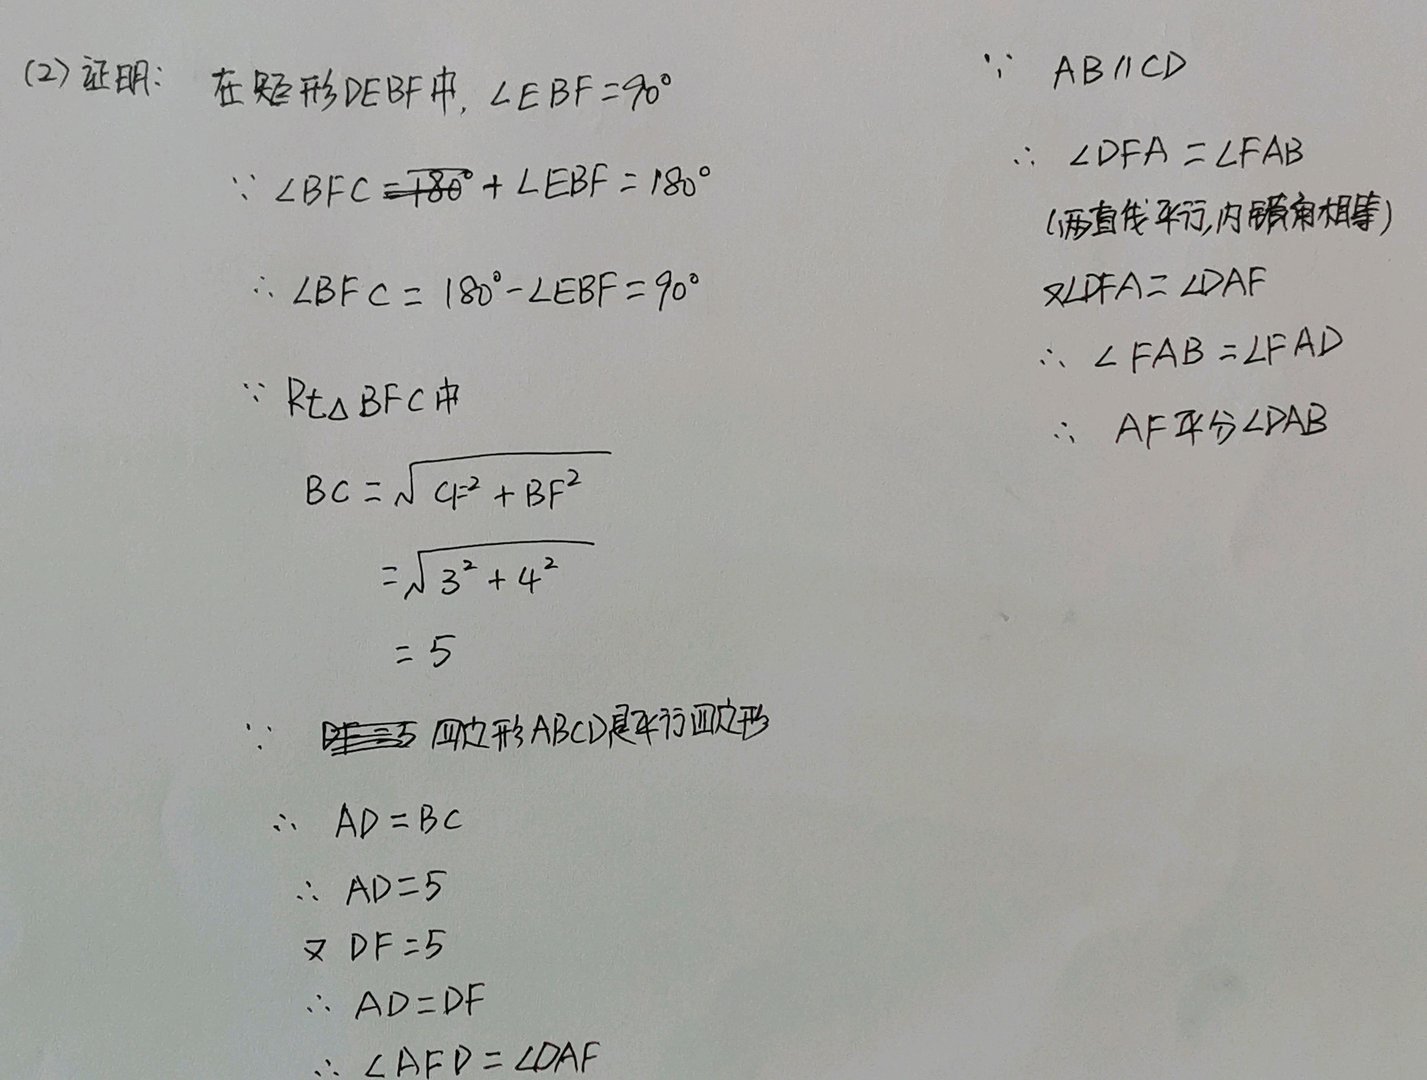 (2)证明: 在矩形DEBF中, ∠EBF=90°
∵ ∠BFC + ∠EBF=180°
∴ ∠BFC= 180°-∠EBF=90°
∵ Rt△BFC中
BC=√(CF²+BF²)
=√(3²+4²)
=5
∵ 四边形ABCD是平行四边形
∴ AD=BC
∴ AD=5
又 DF=5
∴ AD=DF
∴ ∠AFD=∠DAF
∵ AB//CD
∴ ∠DFA=∠FAB
(两直线平行,内错角相等)
又∠DFA=∠DAF
∴ ∠FAB=∠FAD
∴ AF平分∠DAB